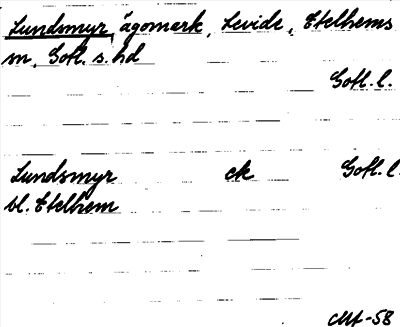 Lundsmyr, ägomark, Levide, Etelhems
sn, Gotl. s. hd
Gotl. l.
Lundsmyr ck Gotl. l.
bl. Etelhem
CMt-58